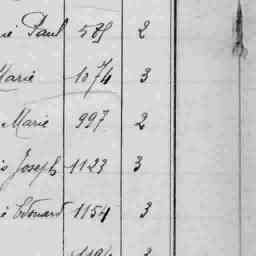 Paul 589 2
Marie 1074 3
Marie 997 2
Joseph 1123 3
Edouard 1154 3